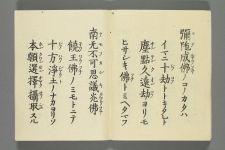 彌陀成佛ノコノカタハ
イマニ十劫トトキタレド
塵點久遠劫ヨリモ
ヒサシキ佛トミヘタマフ
南无不可思議光佛
饒王佛ノミモトニテ
十方淨土ノナカヨリソ
本願選擇攝取スル